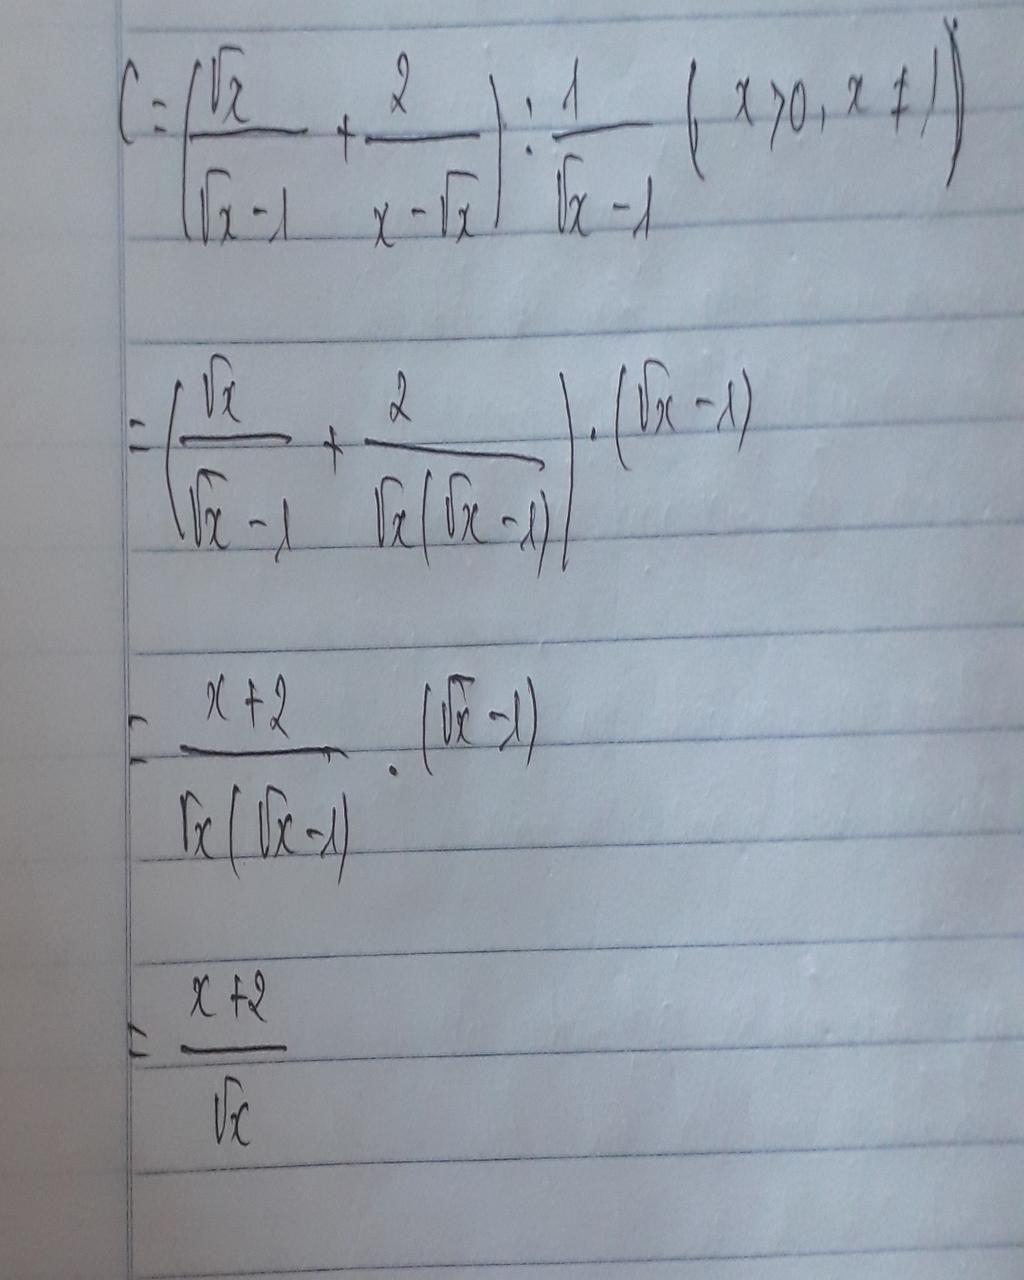 C = (√x/(√x - 1) + 2/(x - √x)) : 1/(√x - 1) (x > 0, x ≠ 1)
= (√x/(√x - 1) + 2/(√x(√x - 1))) . (√x - 1)
= (x + 2)/(√x(√x - 1)) . (√x - 1)
= (x + 2)/√x